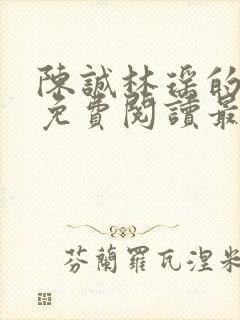 陳誠林瑤的
免費閱讀最
芬蘭羅瓦涅米